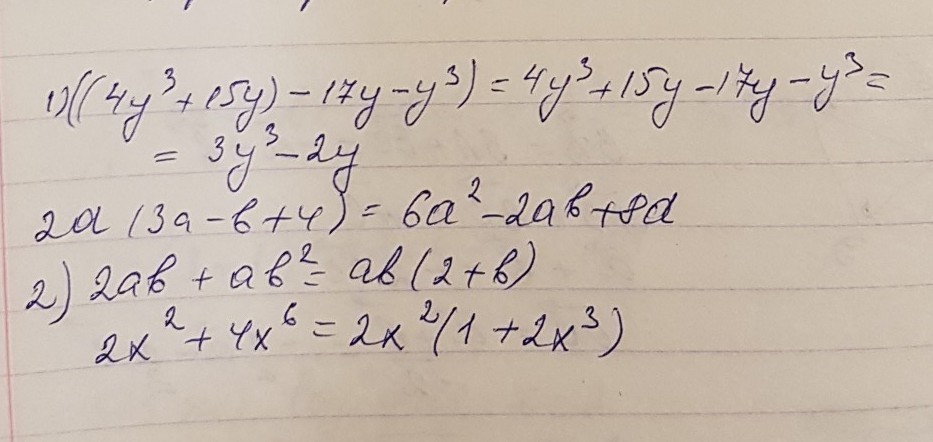 1)((4y³+15y)-17y-y³)=4y³+15y-17y-y³=
= 3y³-2y
2a(3a-b+4)=6a²-2ab+8a
2) 2ab+ab²=ab(2+b)
2x²+4x⁶=2x²(1+2x³)